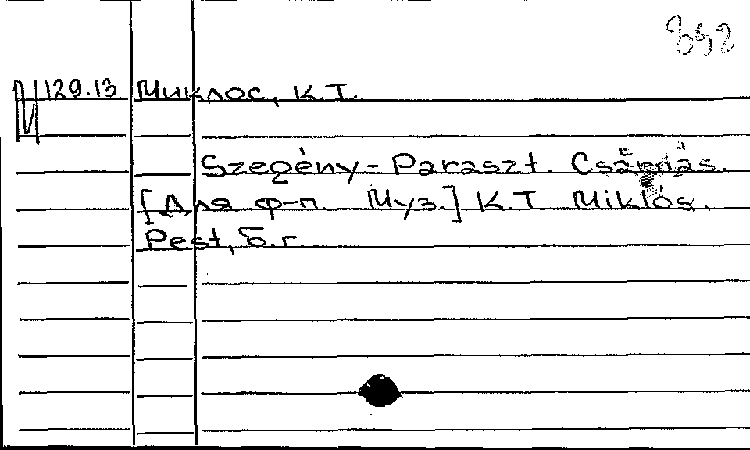 892
М 129.13 Миклос, К.Т.
Szegény-Paraszt. Csárdás.
[Для ф-п. Муз.] К.Т Miklós.
Pest, б.г.